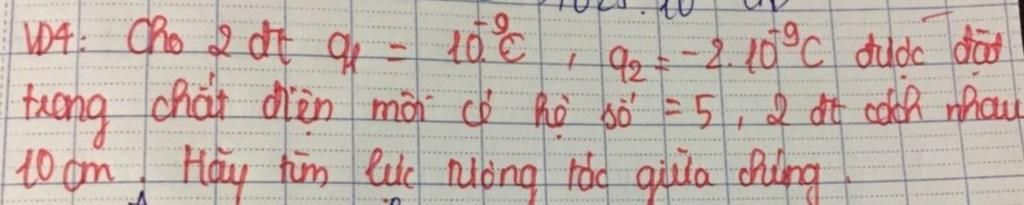 VD4: Cho 2 đt q₁ = 10⁻⁹C, q₂ = -2.10⁻⁹C được đặt
trong chất điện môi có hệ số = 5, 2 đt cách nhau
10 cm. Hãy tìm lực tương tác giữa chúng.